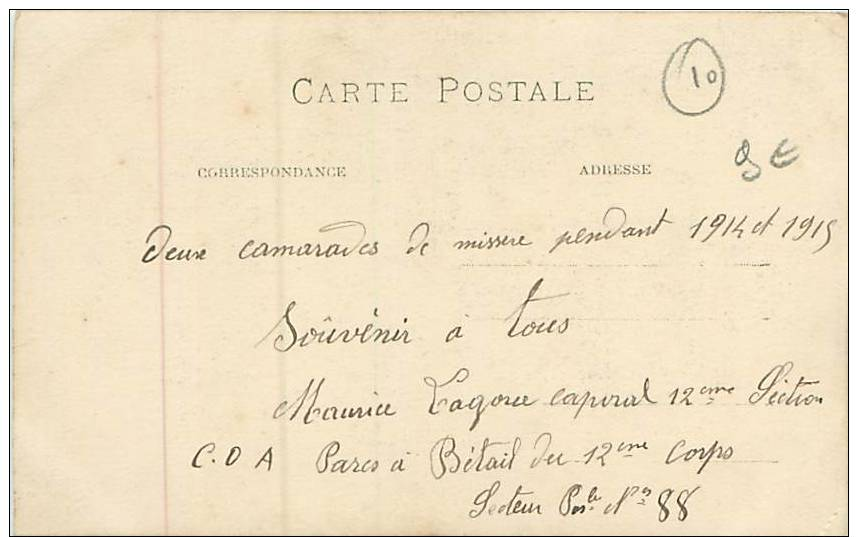 10
CARTE POSTALE
9 €
CORRESPONDANCE ADRESSE
deux camarades de missere pendant 1914 et 1915
Soûvénir à tous
Maurice Lagorce caporal 12ème Séction
C.O A Parcs à Bétail du 12ème Corps
Secteur Posle Nos 88